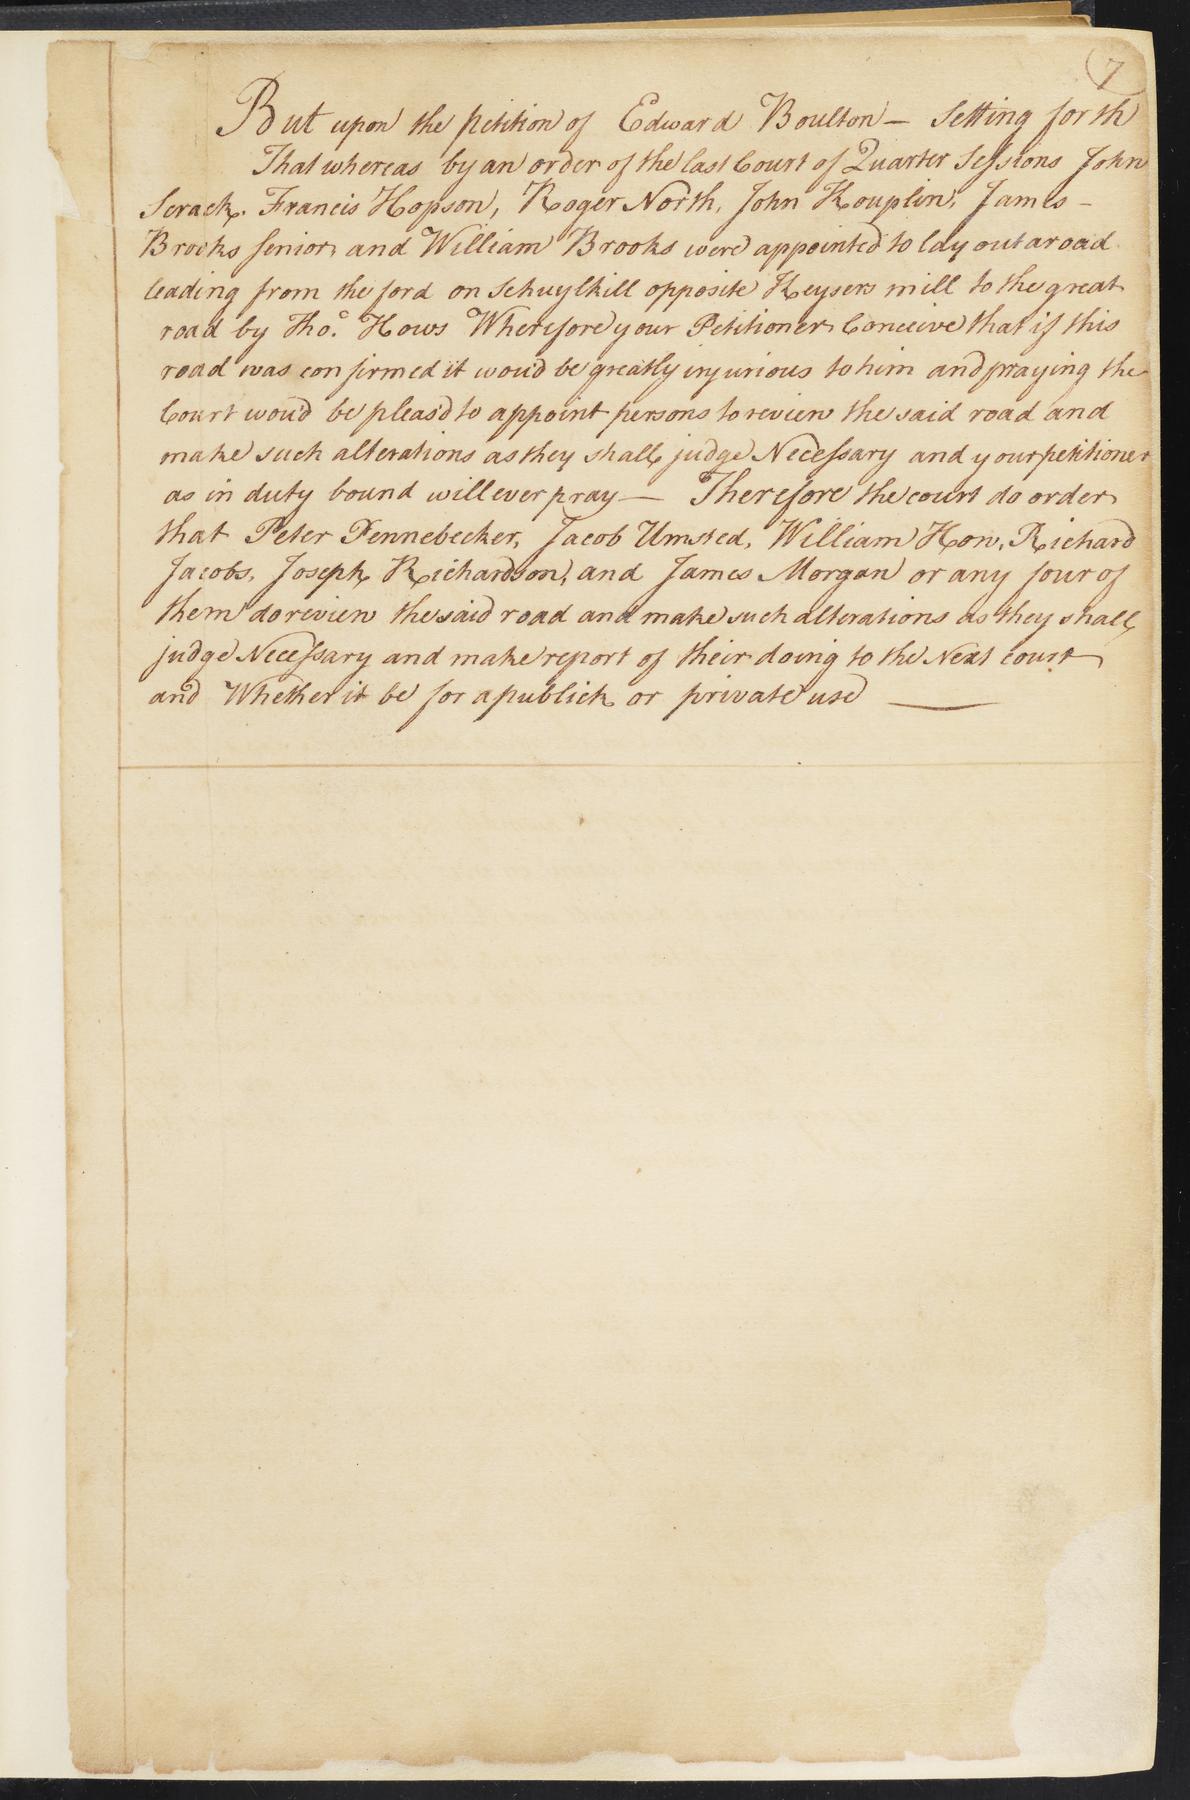 7
But upon the petition of Edward Boulton — Setting forth
That whereas by an order of the last Court of Quarter Sessions John
Scrack. Francis Hopson, Roger North, John Kouplin, James –
Brooks senior and William Brooks were appointed to lay out a road
leading from the ford on Schuylkill opposite Keysers mill to the great
road by Tho.s Hows Wherefore your Petitioner Conceive that if this
road was confirmed it wou'd be greatly injurious to him and praying the
Court wou'd be pleas'd to appoint persons to review the said road and
make such alterations as they shall judge Necessary and your petitioner
as in duty bound will ever pray — Therefore the court do order
that Peter Pennebecker, Jacob Umsted, William How, Richard
Jacobs, Joseph Richardson, and James Morgan or any four of
them do review the said road and make such alterations as they shall
judge Necessary and make report of their doing to the Next court
and Whether it be for a publick or private use —